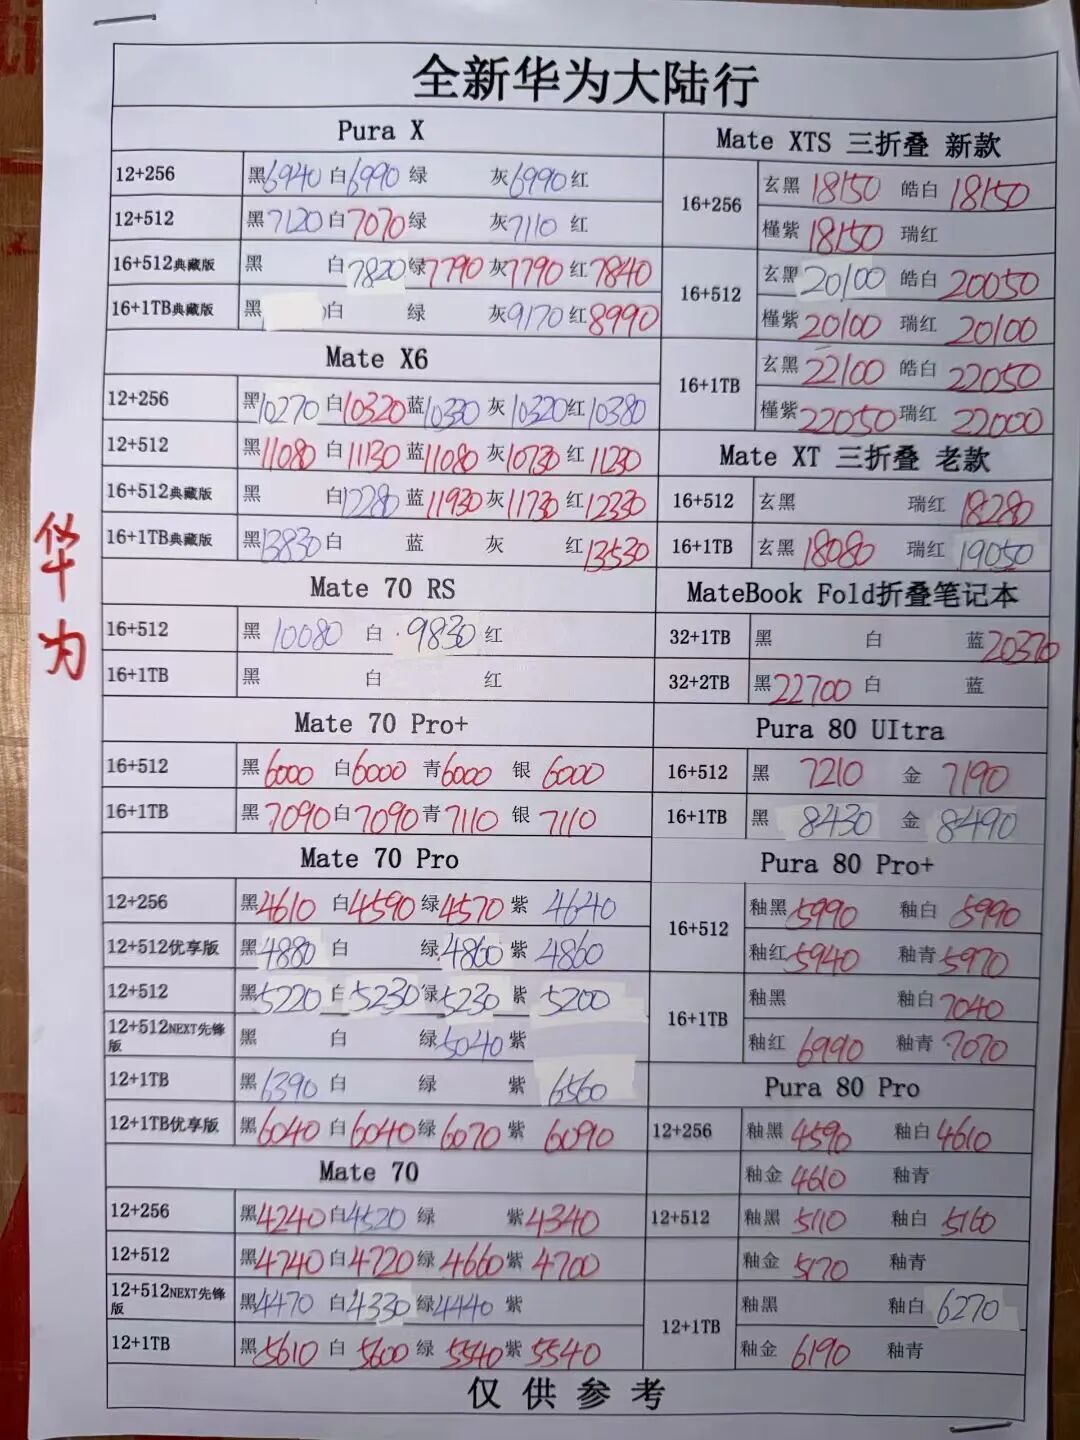 全新华为大陆行
华为
Pura X
12+256 黑6940 白6990 绿 灰6990 红
12+512 黑7120 白7070 绿 灰7110 红
16+512典藏版 黑 白7820 绿7790 灰7790 红7840
16+1TB典藏版 黑 白 绿 灰9170 红8990
Mate X6
12+256 黑10270 白10320 蓝10330 灰10320 红10380
12+512 黑11080 白11130 蓝11080 灰10730 红11230
16+512典藏版 黑 白12280 蓝11930 灰11730 红12330
16+1TB典藏版 黑13830 白 蓝 灰 红13530
Mate 70 RS
16+512 黑 10080 白 9830 红
16+1TB 黑 白 红
Mate 70 Pro+
16+512 黑 6000 白6000 青6000 银 6000
16+1TB 黑 7090 白 7090 青7110 银 7110
Mate 70 Pro
12+256 黑4610 白4590 绿4570 紫 4640
12+512优享版 黑4880 白 绿4860 紫 4860
12+512 黑5220 白5230 绿5230 紫 5200
12+512NEXT先锋版 黑 白 绿5040 紫
12+1TB 黑6390 白 绿 紫 6560
12+1TB优享版 黑6040 白6040 绿6070 紫 6090
Mate 70
12+256 黑4240 白4520 绿 紫4340
12+512 黑4740 白4720 绿4660 紫4700
12+512NEXT先锋版 黑4470 白4330 绿4440 紫
12+1TB 黑5610 白 5600 绿 5540 紫5540
Mate XTS 三折叠 新款
16+256 玄黑 18150 皓白 18150
槿紫 18150 瑞红
16+512 玄黑 20100 皓白 20050
槿紫 20100 瑞红 20100
16+1TB 玄黑 22100 皓白 22050
槿紫 22050 瑞红 22000
Mate XT 三折叠 老款
16+512 玄黑 瑞红 18280
16+1TB 玄黑 18080 瑞红 19050
MateBook Fold折叠笔记本
32+1TB 黑 白 蓝20370
32+2TB 黑22700 白 蓝
Pura 80 UItra
16+512 黑 7210 金 7190
16+1TB 黑 8430 金 8490
Pura 80 Pro+
16+512 釉黑5990 釉白 5990
釉红5940 釉青5970
16+1TB 釉黑 釉白7040
釉红 6990 釉青 7070
Pura 80 Pro
12+256 釉黑 4590 釉白4610
釉金 4610 釉青
12+512 釉黑 5110 釉白 5160
釉金 5170 釉青
12+1TB 釉黑 釉白 6270
釉金 6190 釉青
仅供参考